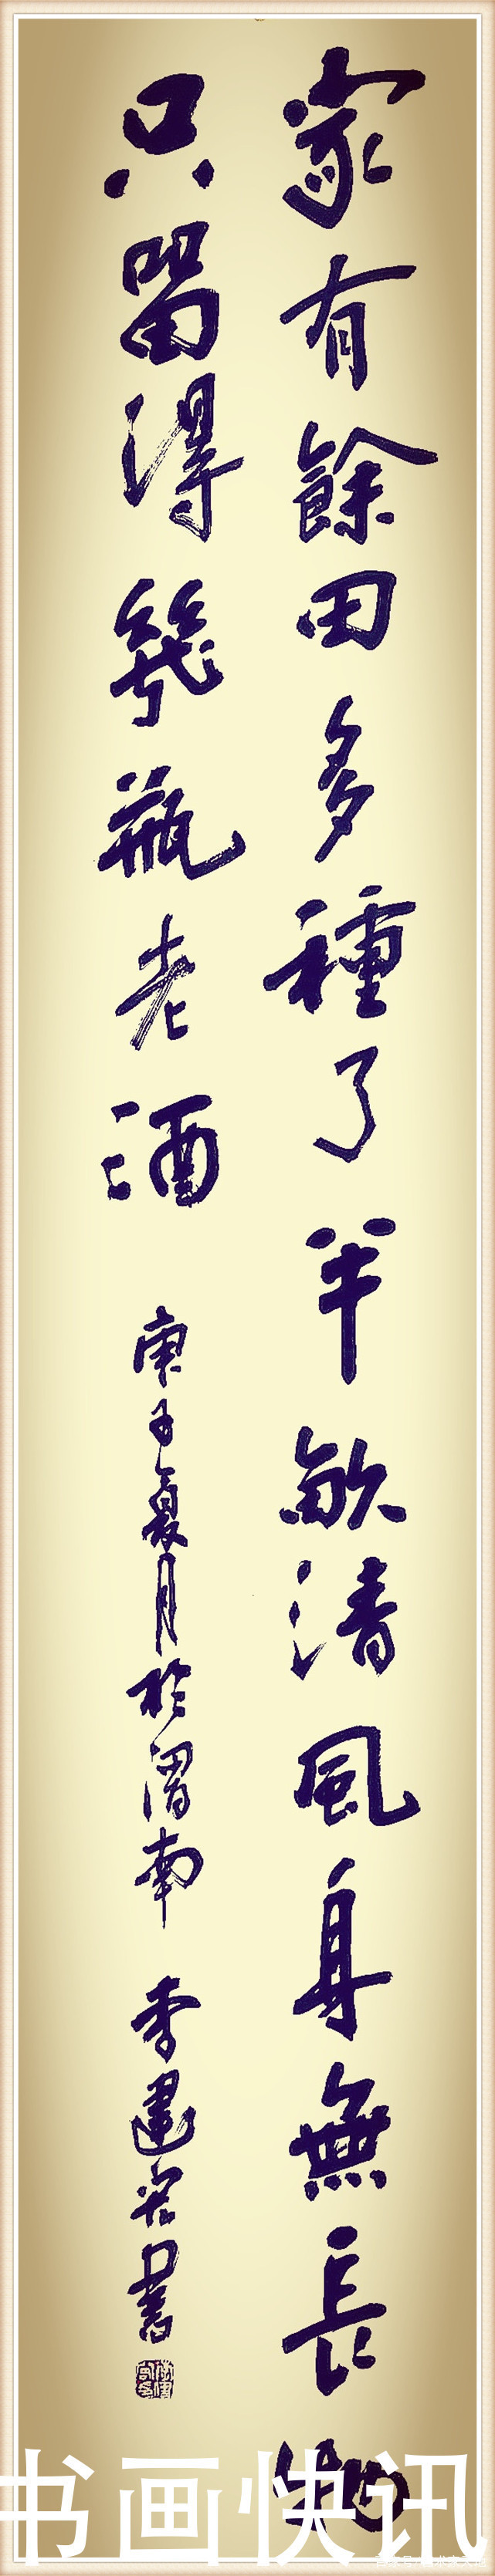 家有餘田多種了半畝清風身無長物
只留得幾瓶老酒
庚子夏月於渭南 李建 書
书画快讯